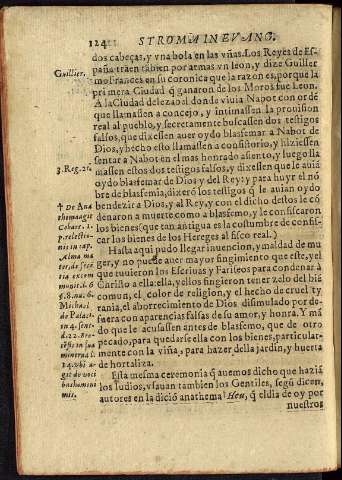 124 STROMA IN EVANG.
dos cabeças, y vna bola en las vñas. Los Reyes de Es-
paña traen tãbien por armas vn leon, y dize Guiller
Guillier.
mo Frances en su coronica que la razon es, porque la
primera Ciudad q̃ ganaron de los Moros fue Leon.
A la Ciudad de Iezabel donde viuia Nabot con ordẽ
que llamassen a concejo, y intimassen la prouision
real al pueblo, y secretamente buscassen dos testigos
falsos, que dixessen auer oydo blasfemar a Nabot de
Dios, y hecho esto llamassen a consistorio, y hiziessen
sentar a Nabot en el mas honrado asiento, y luego lla
massen estos dos testigos falsos, y dixessen que le auiã
3. Reg. 21.
oydo blasfemar de Dios y del Rey: y para huyr el nõ
bre de blasfemia, dixerõ los testigos q̃ le auian oydo
† De Ana
bendezir a Dios, y al Rey, y con el dicho destos le cõ
thema agit
denaron a muerte como a blasfemo, y le confiscaron
Couarr. 1.
los bienes (que tan antigua es la costumbre de confis-
p. relectio-
car los bienes de los Hereges al fisco real.)
nis in cap.
Hasta aqui pudo llegar inuencion, y maldad de mu
Alma ma
ger, y no puede auer mayor fingimiento que este, y el
ter, de sẽtẽ
que tuuieron los Escriuas y Fariseos para condenar à
tia excom
Christo a ella: ella, y ellos fingieron tener zelo del biẽ
comun, el color de religion, y el hecho de cruel ty
Michael
rania, el aborrecimiento de Dios dissimulado por de-
de Palac.
fuera con aparencias falsas de su amor, y honra. Y mã
in 4. sent.
do que le acusassen antes de blasfemo, que de otro
pecado, para quedarse ella con los bienes, particular-
mente con la viña, para hazer della jardin, y huerta
de hortaliza.
Esta mesma ceremonia q̃ auemos dicho que haziã
los Iudios, vsauan tambien los Gentiles, segũ dicen,
autores en la dició anathema! Heu, q̃ el dia de oy por
nuestros